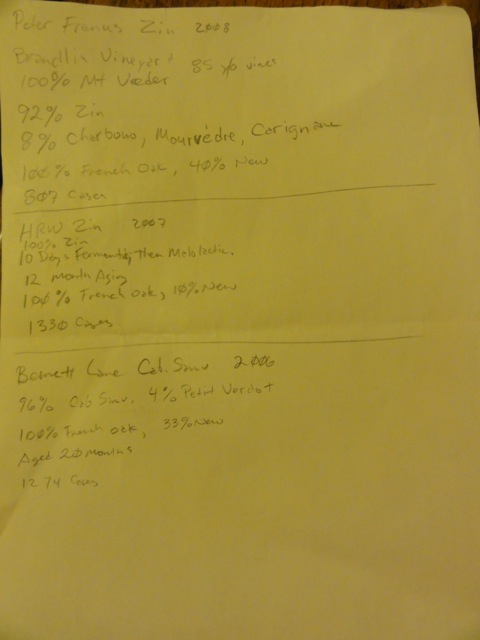 Peter Franus Zin 2008
Brandlin Vineyard 85 y/o vines
100% Mt Veeder
92% Zin
8% Charbono, Mourvèdre, Carignane
100% French Oak, 40% New
807 Cases
HRW Zin 2007
100% Zin
10 Days Fermenting, Then Malolactic.
12 Month Aging
100% French Oak, 10% New
1330 Cases
Lane Cab. Sauv 2006
96% Cab Sauv. 4% Petit Verdot
100% French oak, 33% New
Aged 20 Months
1274 Cases